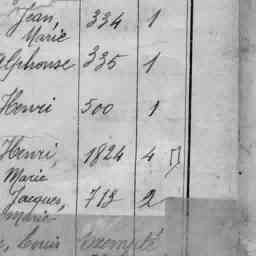 Jean, 334 1
Marie
Alphonse 335 1
Henri 500 1
Henri, 1824 4
Marie
Jacques, 713 2
Marie
Louis exempté